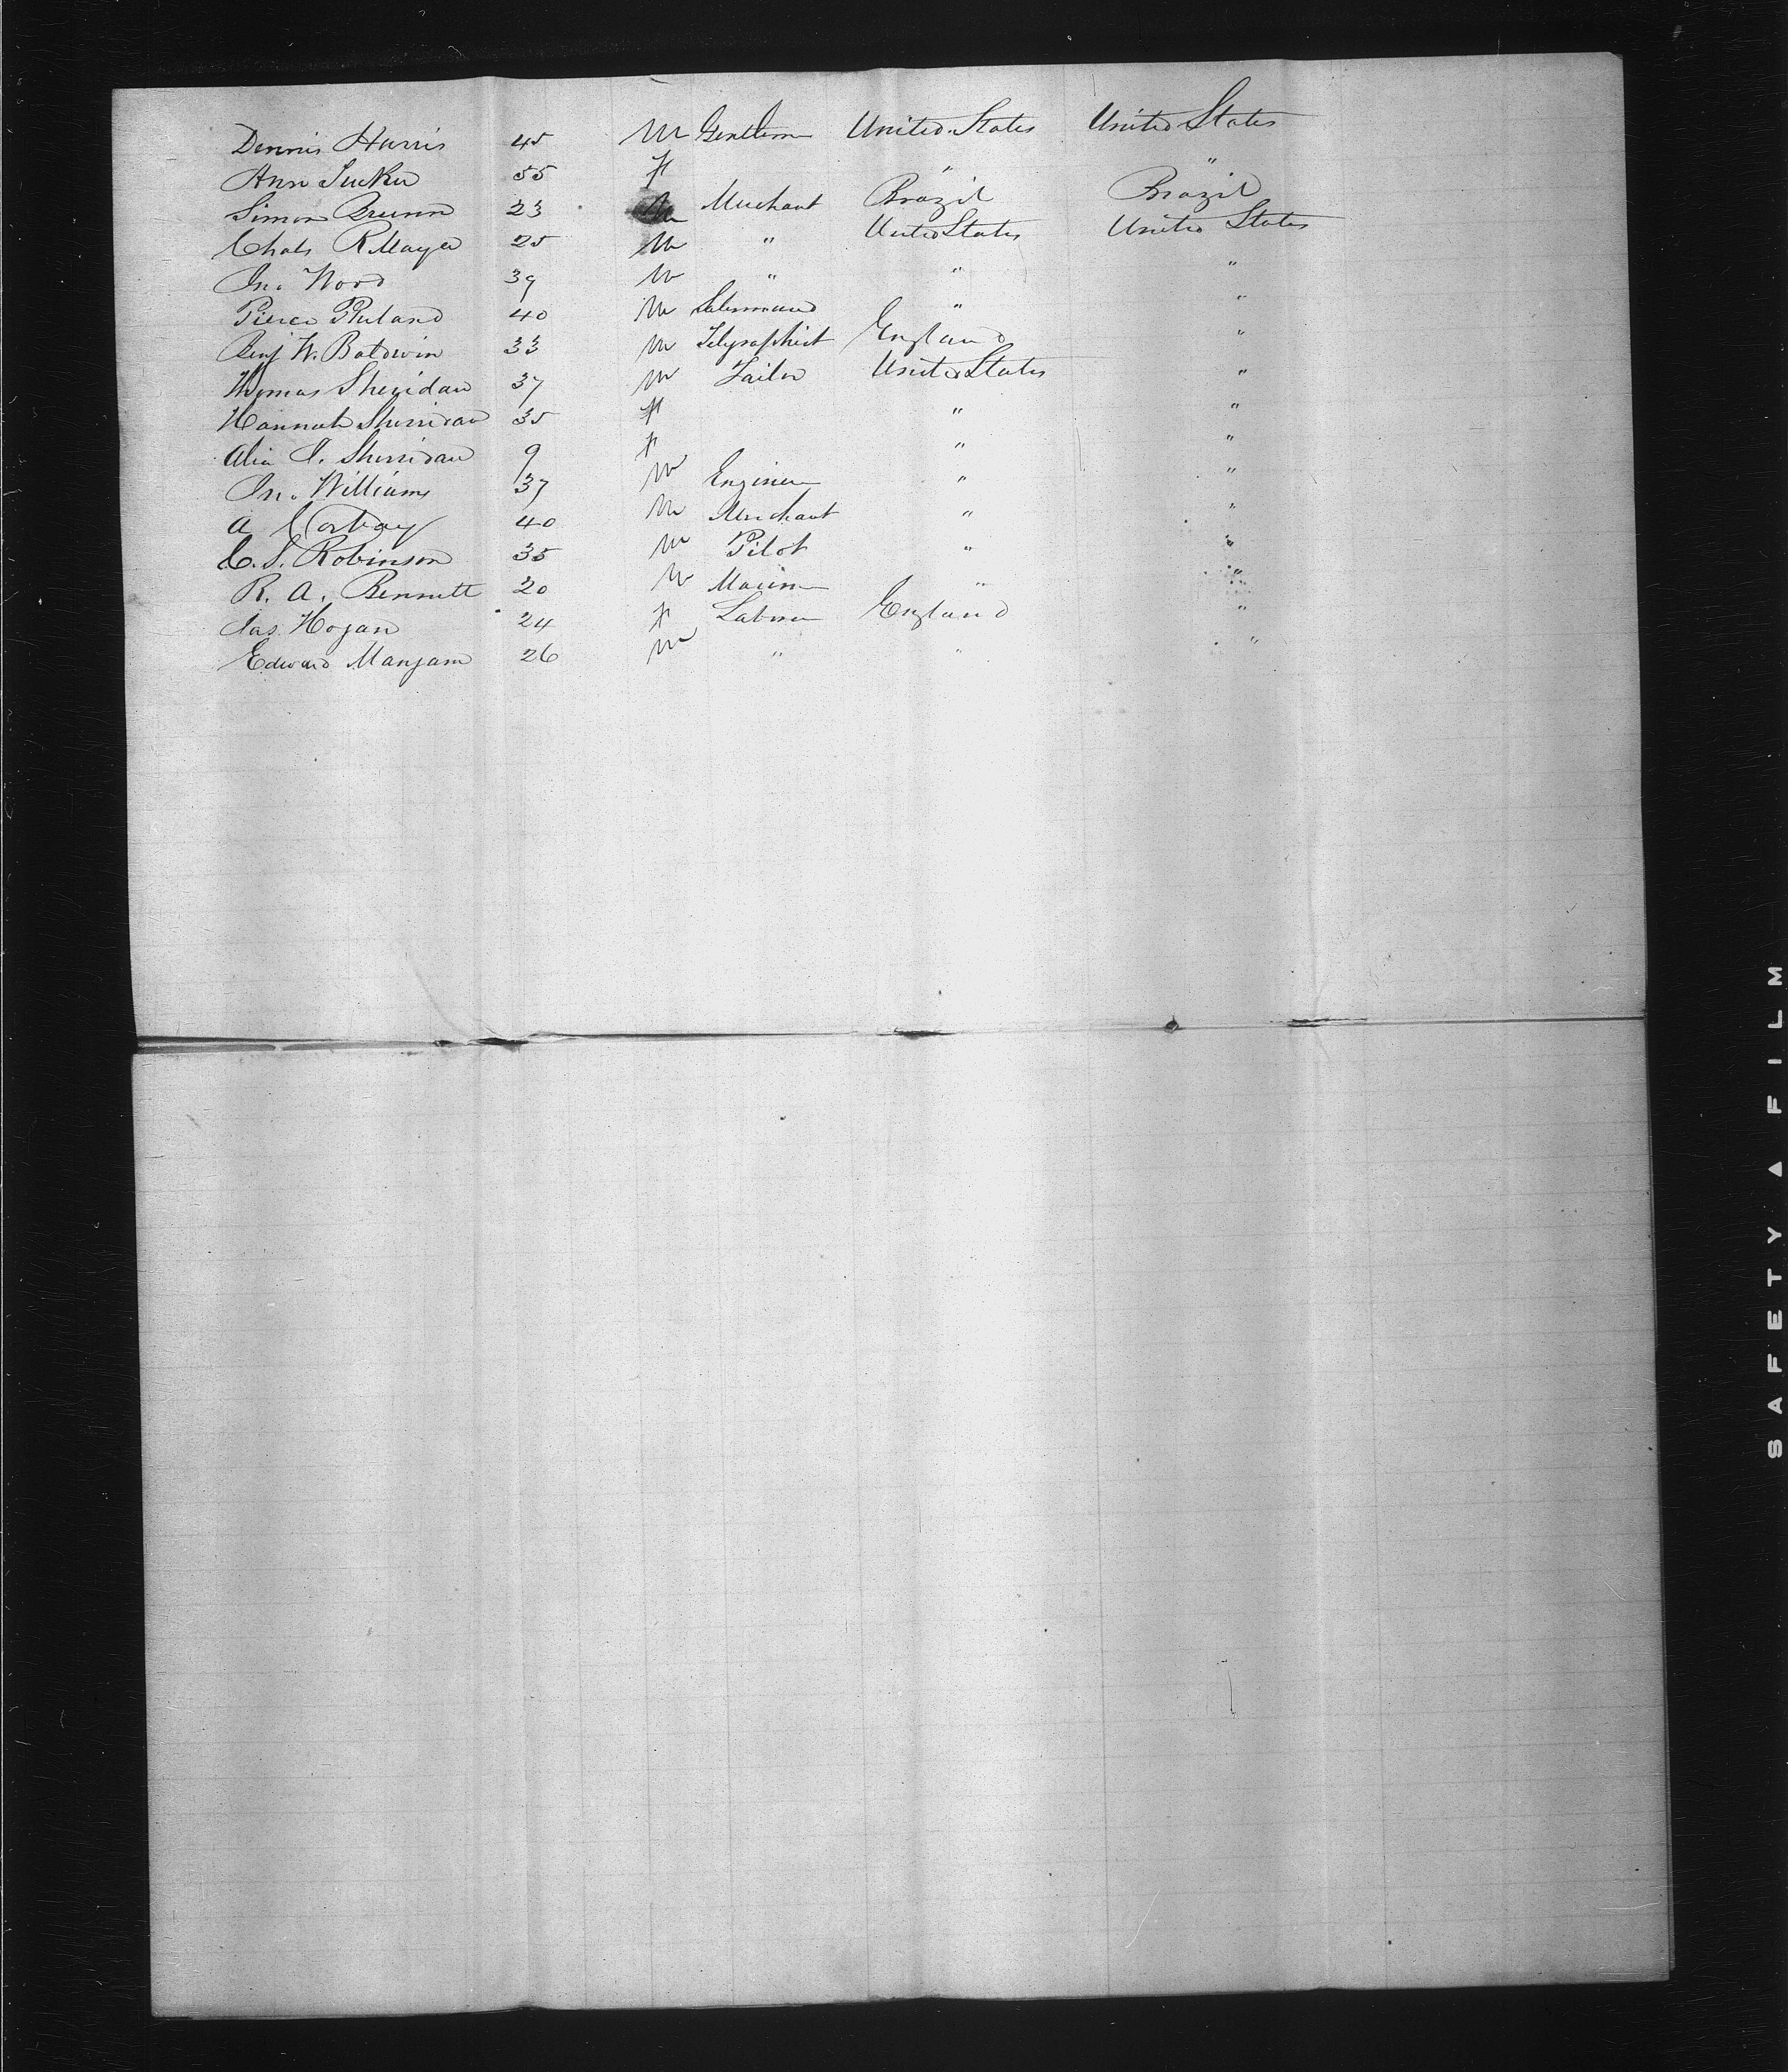 Dennis Harris 45 M Gentlem United States United States
Ann Tucker 55 f " "
Simon Brunn 23 M Merchant Brazil Brazil
Chals R Mayer 25 M " United States United States
Jno. Wood 39 M " " "
Pierce 40 M " "
Benj W. Baldwin 33 M Telegraphist England "
Thomas Sheridan 37 M Tailor United States "
Hannah Sherridan 35 f " "
Sherridan 9 f " "
Jno. Williams 37 M Engineer " "
A 40 M Merchant " "
C. S. Robinson 35 M Pilot " "
R. A. Bennett 20 M " "
Jas. Hogan 24 f Laborer England "
Edward Mangam 26 M " " "
SAFETY ▲ FILM